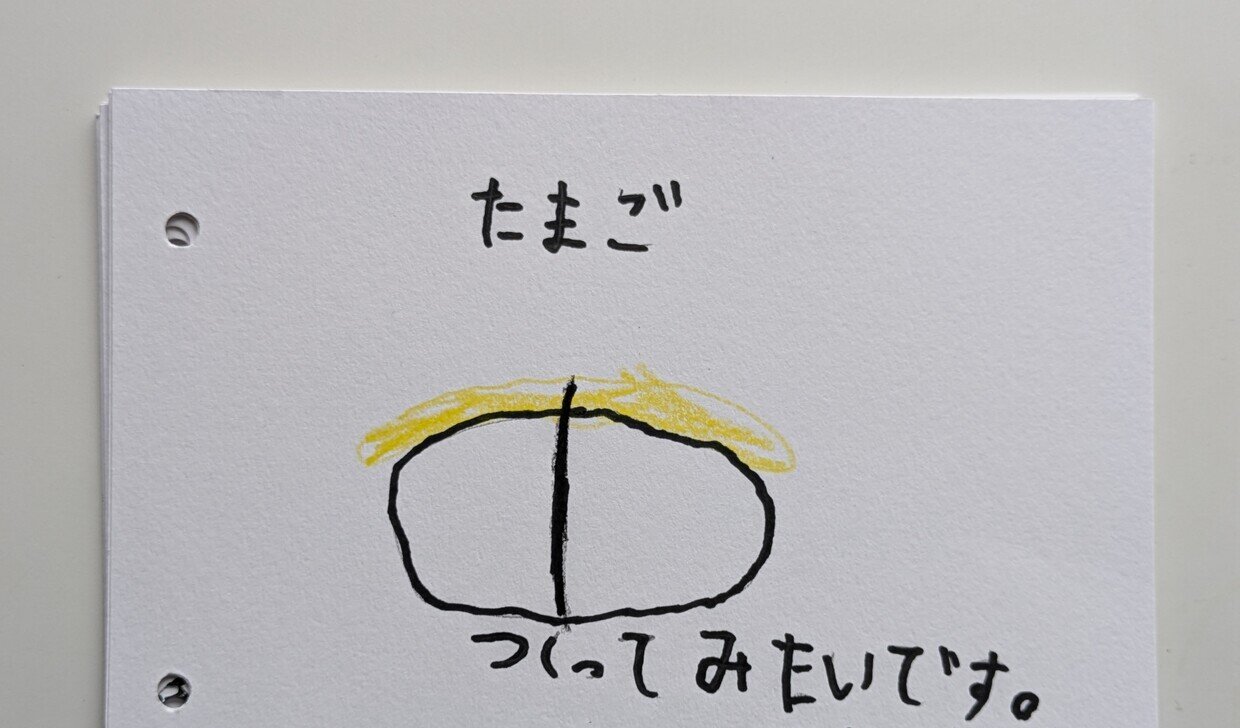 たまご
つくってみたいです。